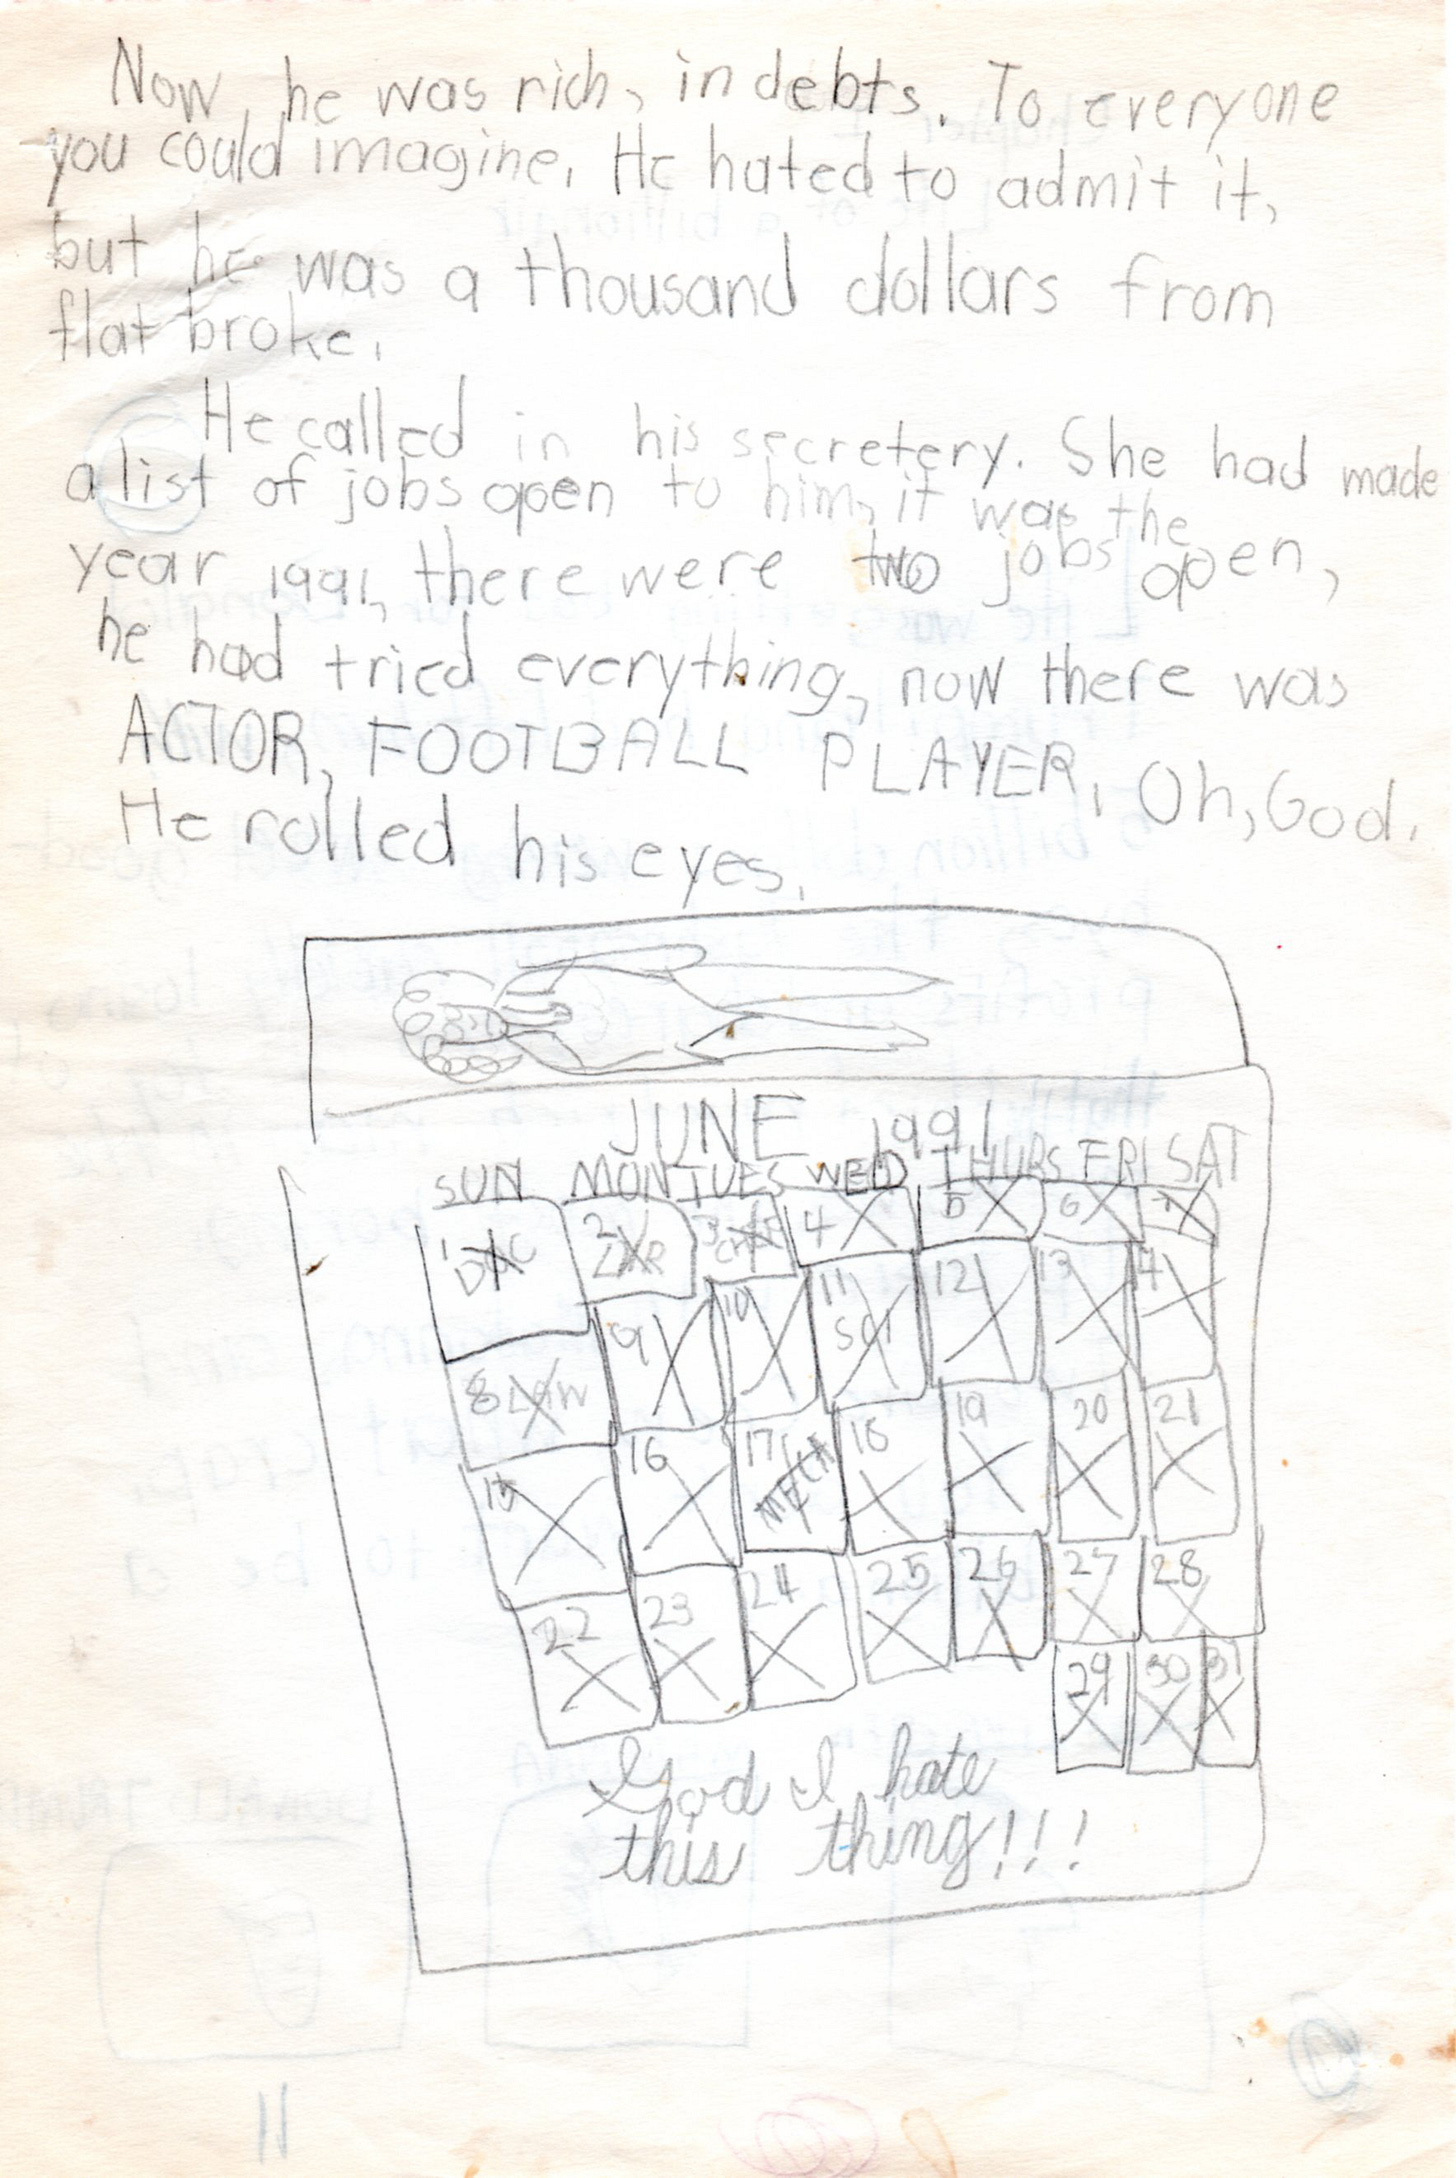 Now, he was rich, in debts. To everyone
you could imagine. He hated to admit it,
but he was a thousand dollars from
flat broke.
He called in his secretery. She had made
a list of jobs open to him, it was the
year 1991, there were two jobs open,
he had tried everything, now there was
ACTOR, FOOTBALL PLAYER, Oh, God.
He rolled his eyes.
JUNE 1991
SUN MON TUES WED THURS FRI SAT
1 DOC 2 3 4 5 6 7
8 LAW 9 10 11 SCI 12 13 14
15 16 17 MECH 18 19 20 21
22 23 24 25 26 27 28
29 30 31
God I hate
this thing!!!
11